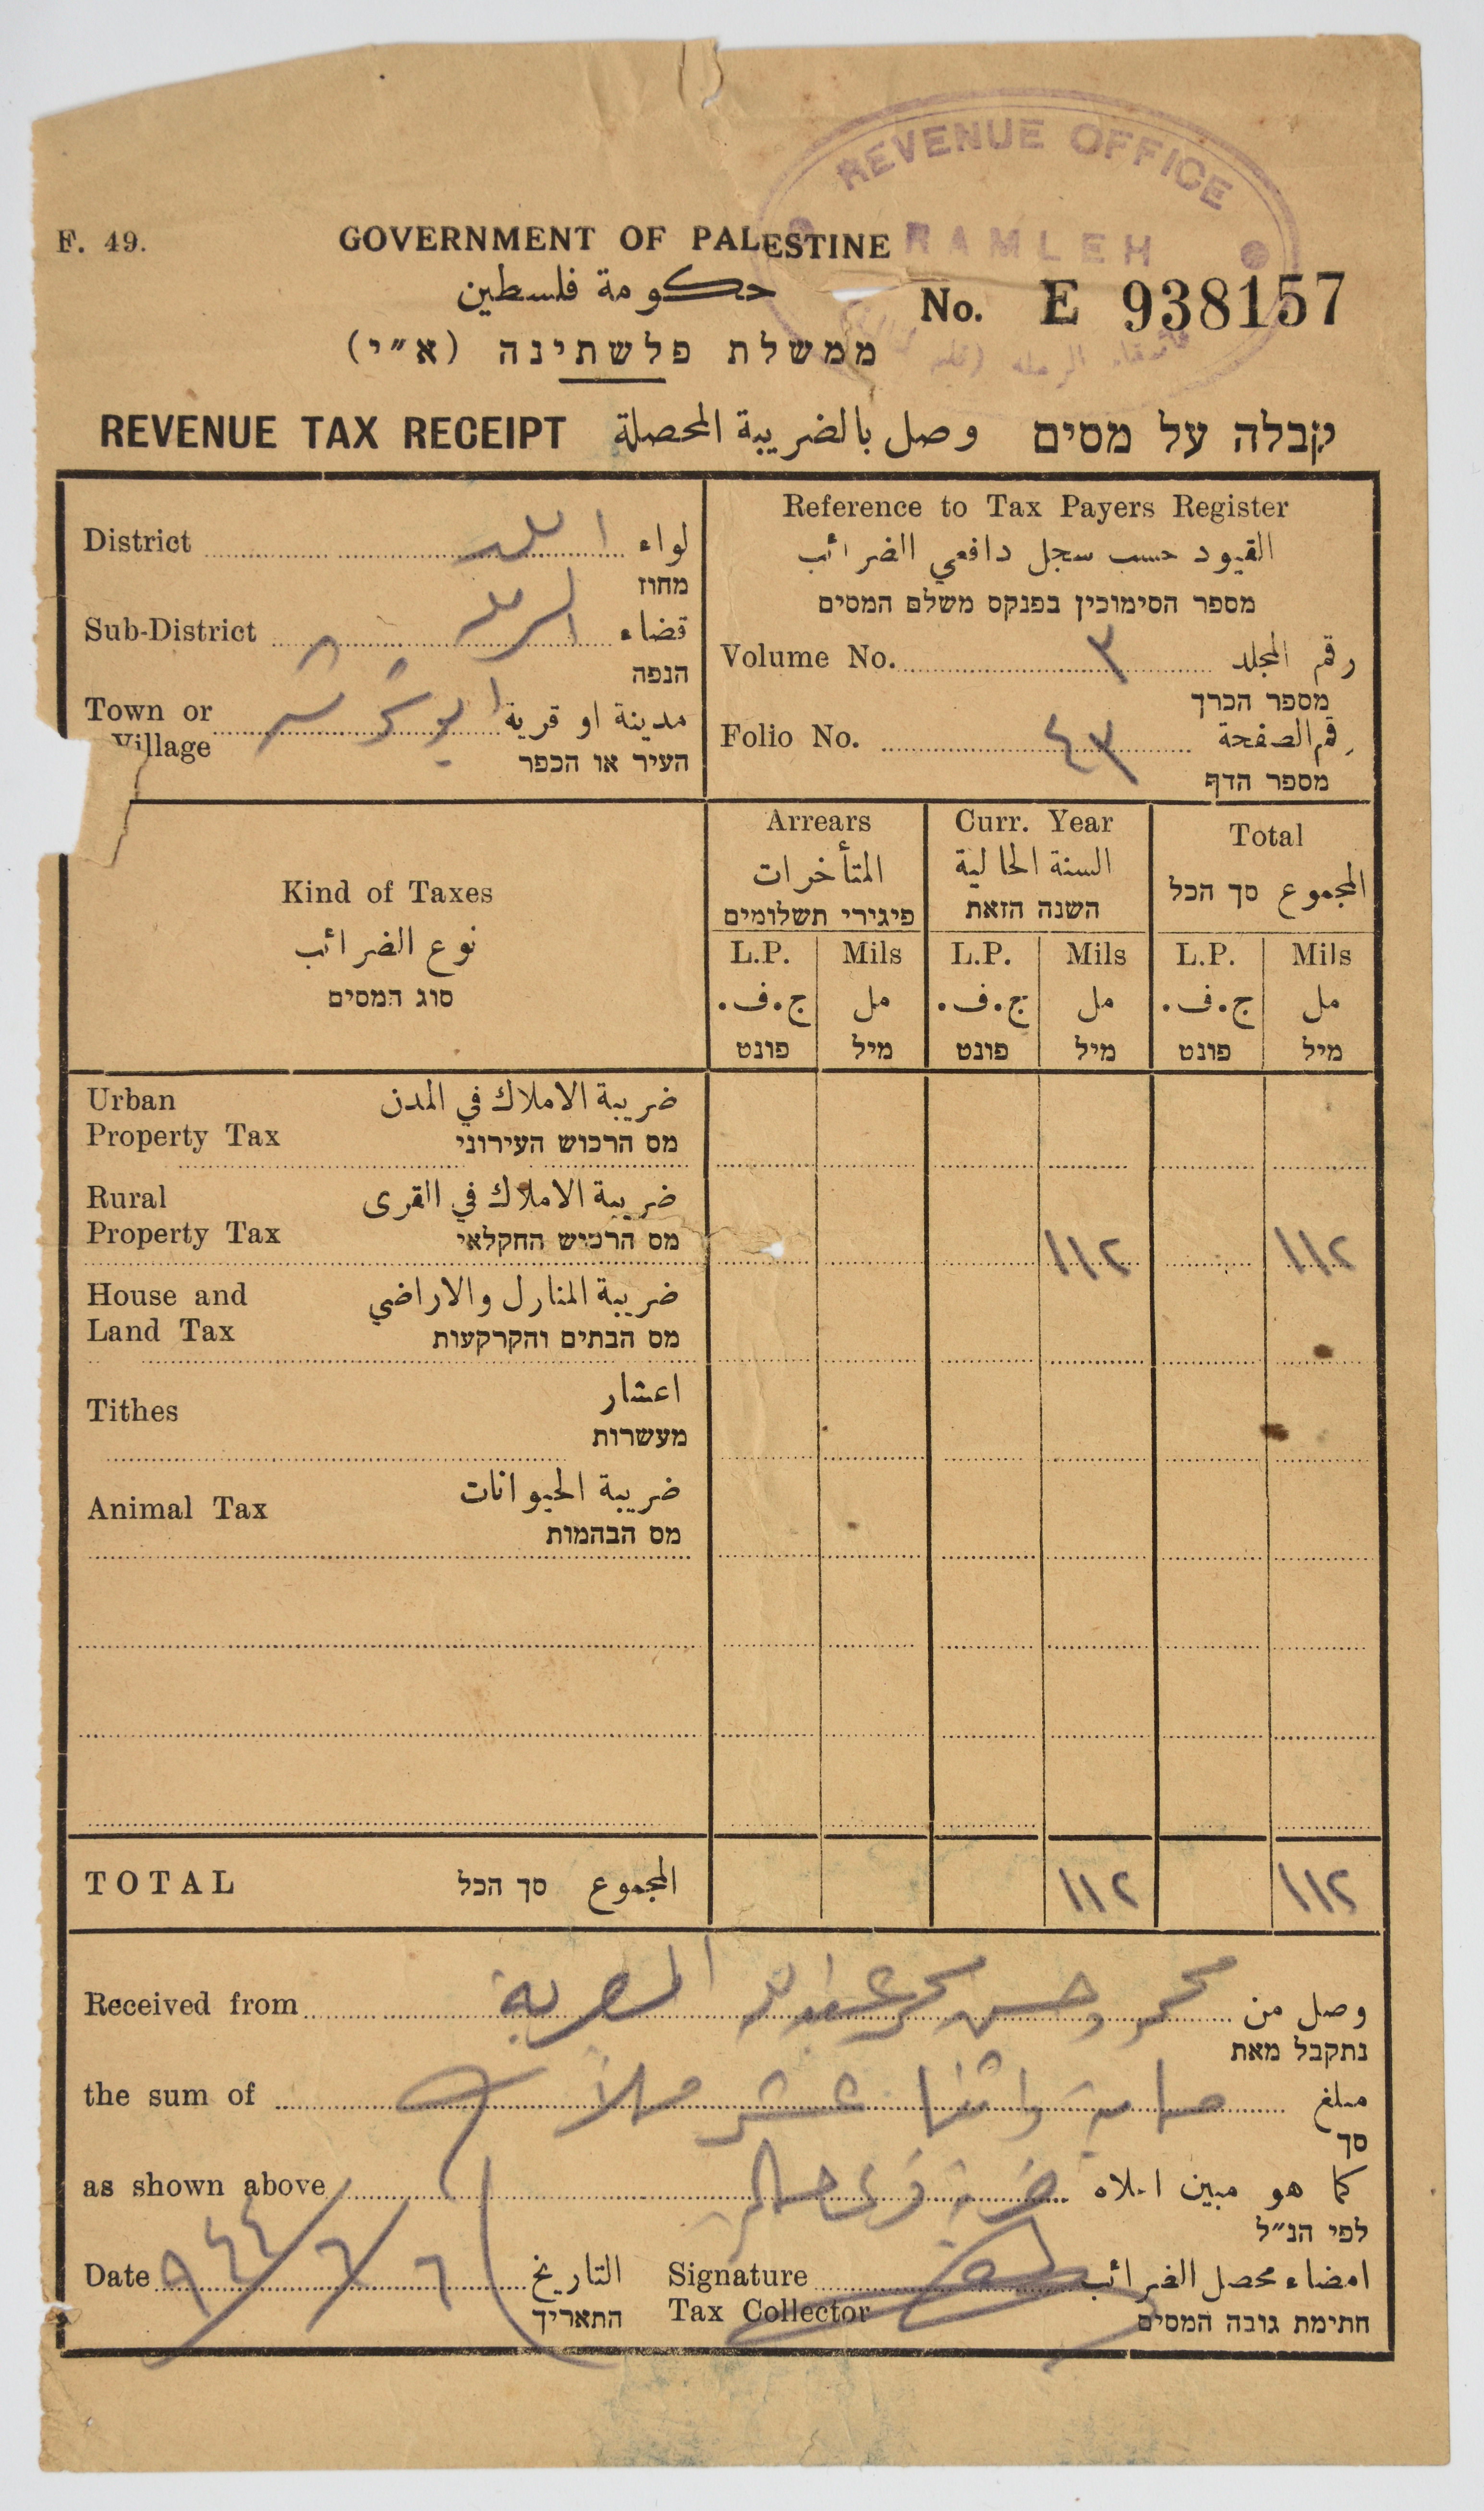 REVENUE OFFICE
RAMLEH
F. 49.
GOVERNMENT OF PALESTINE
حكومة فلسطين
No. E 938157
ממשלת פלשתינה (א״י)
REVENUE TAX RECEIPT وصل بالضريبة المحصلة קבלה על מסים
District الله لواء
מחוז
Sub-District الرمله قضاء
הנפה
Town or Village ابو شوشه مدينة او قرية
העיר או הכפר
Reference to Tax Payers Register
القيود حسب سجل دافعي الضرائب
מספר הסימוכין בפנקס משלם המסים
Volume No. ٣ رقم المجلد
מספר הכרך
Folio No. ٤٣ رقم الصفحة
מספר הדף
Kind of Taxes
نوع الضرائب
סוג המסים
Arrears
المتأخرات
פיגירי תשלומים
Curr. Year
السنة الحالية
השנה הזאת
Total
المجموع סך הכל
L.P. Mils L.P. Mils L.P. Mils
ج.ف. مل ج.ف. مل ج.ف. مل
פונט מיל פונט מיל פונט מיל
Urban ضريبة الاملاك في المدن
Property Tax מס הרכוש העירוני
Rural ضريبة الاملاك في القرى
Property Tax מס הרכוש החקלאי ١١٢ ١١٢
House and ضريبة المنازل والاراضي
Land Tax מס הבתים והקרקעות
Tithes اعشار
מעשרות
Animal Tax ضريبة الحيوانات
מס הבהמות
TOTAL סך הכל المجموع ١١٢ ١١٢
Received from محمد وحسن محمد عبدالله المصرية وصل من
נתקבל מאת
the sum of ماية واثنا عشر ملاً مبلغ
סך
as shown above كما هو مبين اعلاه
לפי הנ״ל
Date ٦/٦/٩٤٤ التاريخ Signature امضاء محصل الضرائب
התאריך Tax Collector חתימת גובה המסים